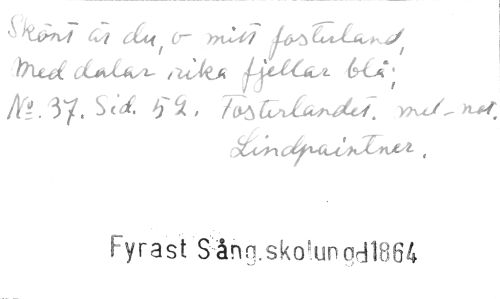 Skönt är du, o mitt fosterland,
Med dalar rika fjellar blå;
No. 37. Sid. 52. Fosterlandet. mel-not.
Lindpaintner.
Fyrast Sång.skolungd1864